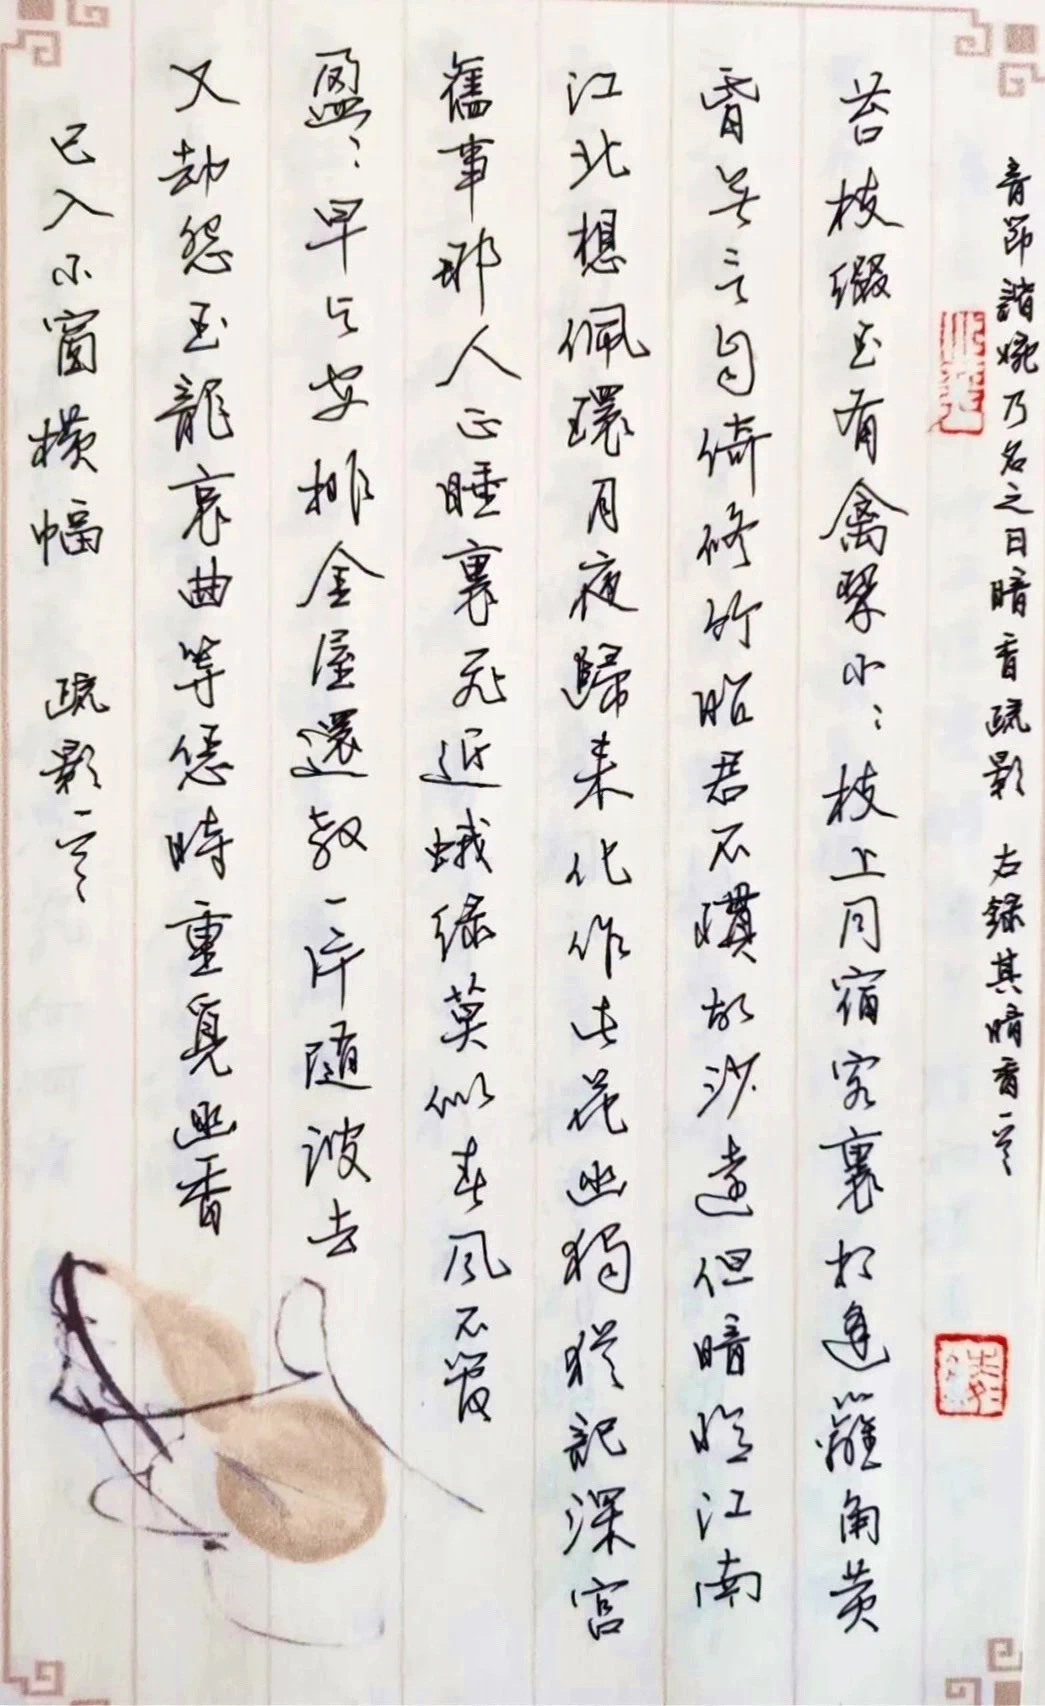 音節諧婉乃名之曰暗香疏影 右錄其暗香一首
苔枝綴玉有禽翠小〻枝上同宿客裏相逢籬角黄
昏無言自倚修竹昭君不慣胡沙遠但暗憶江南
江北想佩環月夜歸来化作此花幽獨猶記深宮
舊事那人正睡裏飛近蛾綠莫似春風不管
盈〻早與安排金屋還教一片隨波去
又却怨玉龍哀曲等恁時重覓幽香
已入小窗横幅 疏影一首